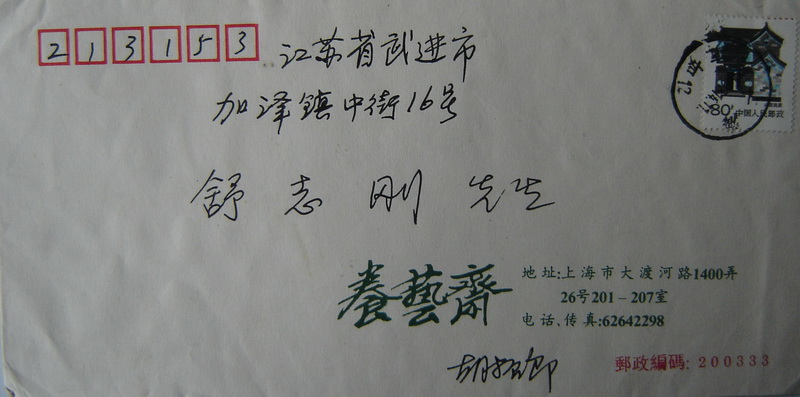 213153
江苏省武进市
加泽镇中街16号
舒志刚先生
80
中国人民邮政
養藝齋
地址:上海市大渡河路1400弄
26号201-207室
电话、传真:62642298
胡
郵政編碼: 200333